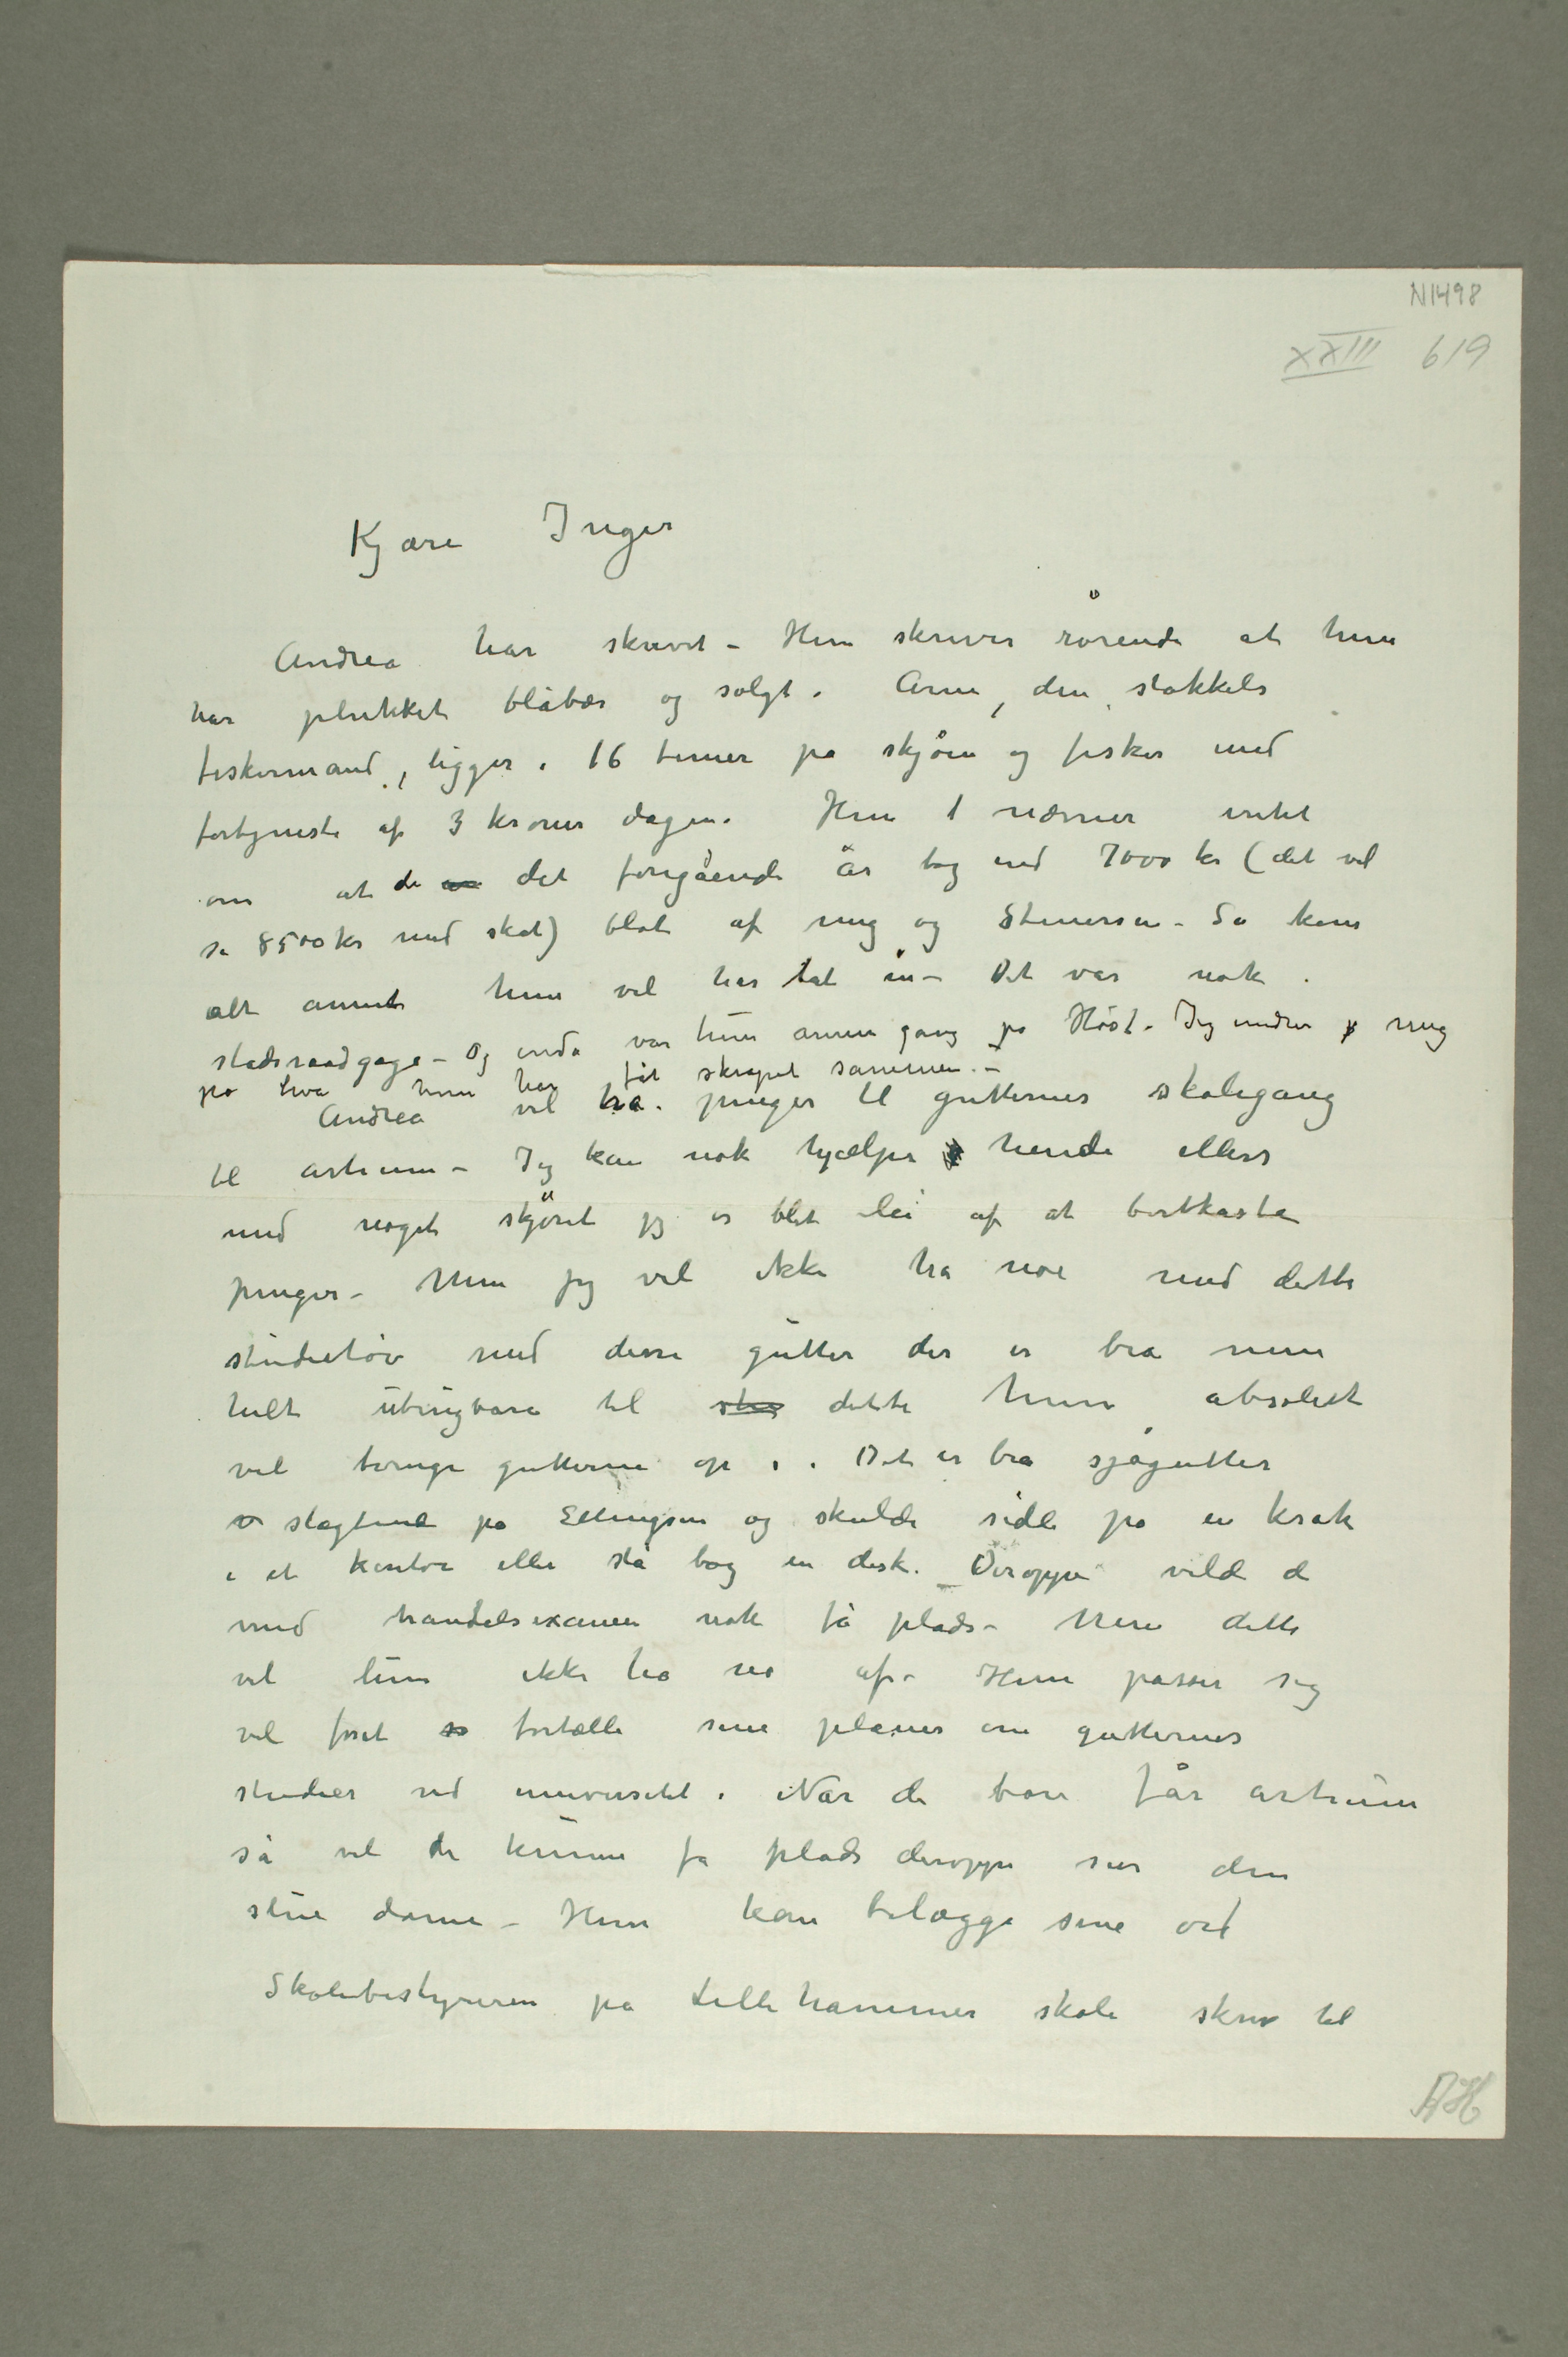 N1498
XXIII 619
Kjære Inger
Andrea har skrevet – Hun skriver rörende at hun
har plukket blåbær og solgt. Arne, den stakkels
fiskermand, ligger i 16 timer på skjøen og fisker med
fortjeneste af 3 kroner dagen. Hun nævner intet
om at de det foregående år tog ind 7000 kr (det vil
si 8500 kr med skat) blot af mig og Stenersen – Så kom
alt annet hun vel har tat in – Det var nok
stadsraadgage – Og enda var hun annen gang på Høst – Jeg undres mig
på hva hun har fåt skrapet sammen. –
Andrea vil ha penger til guttenes skolegang
til artium – Jeg kan nok hjælpe hende ellers
med noget skjönt jeg er blet lei af at bortkaste
penger – Men jeg vil ikke ha noe med dette
studietöv med disse gutter der er bra men
helt ubrugbare til dette hun absolut
vil tvinge gutterne op i. Det er bra sjøgutter
slagtend på Ellingsen og skulde sidde på en krak
i et kontor eller stå bag en disk. Deroppe vilde de
med handelsexamen nok få plads – Men dette
vil hun ikke ha no af – Hun passer sig
vel for at fortælle sine planer om guttenes
studier ved universitet. Når de bare får artium
så vil de kunne få plads deroppe sier den
slue dame – Hun kan belægge sine ord
Skolebestyreren på Lillehammer skole skrev til
AH